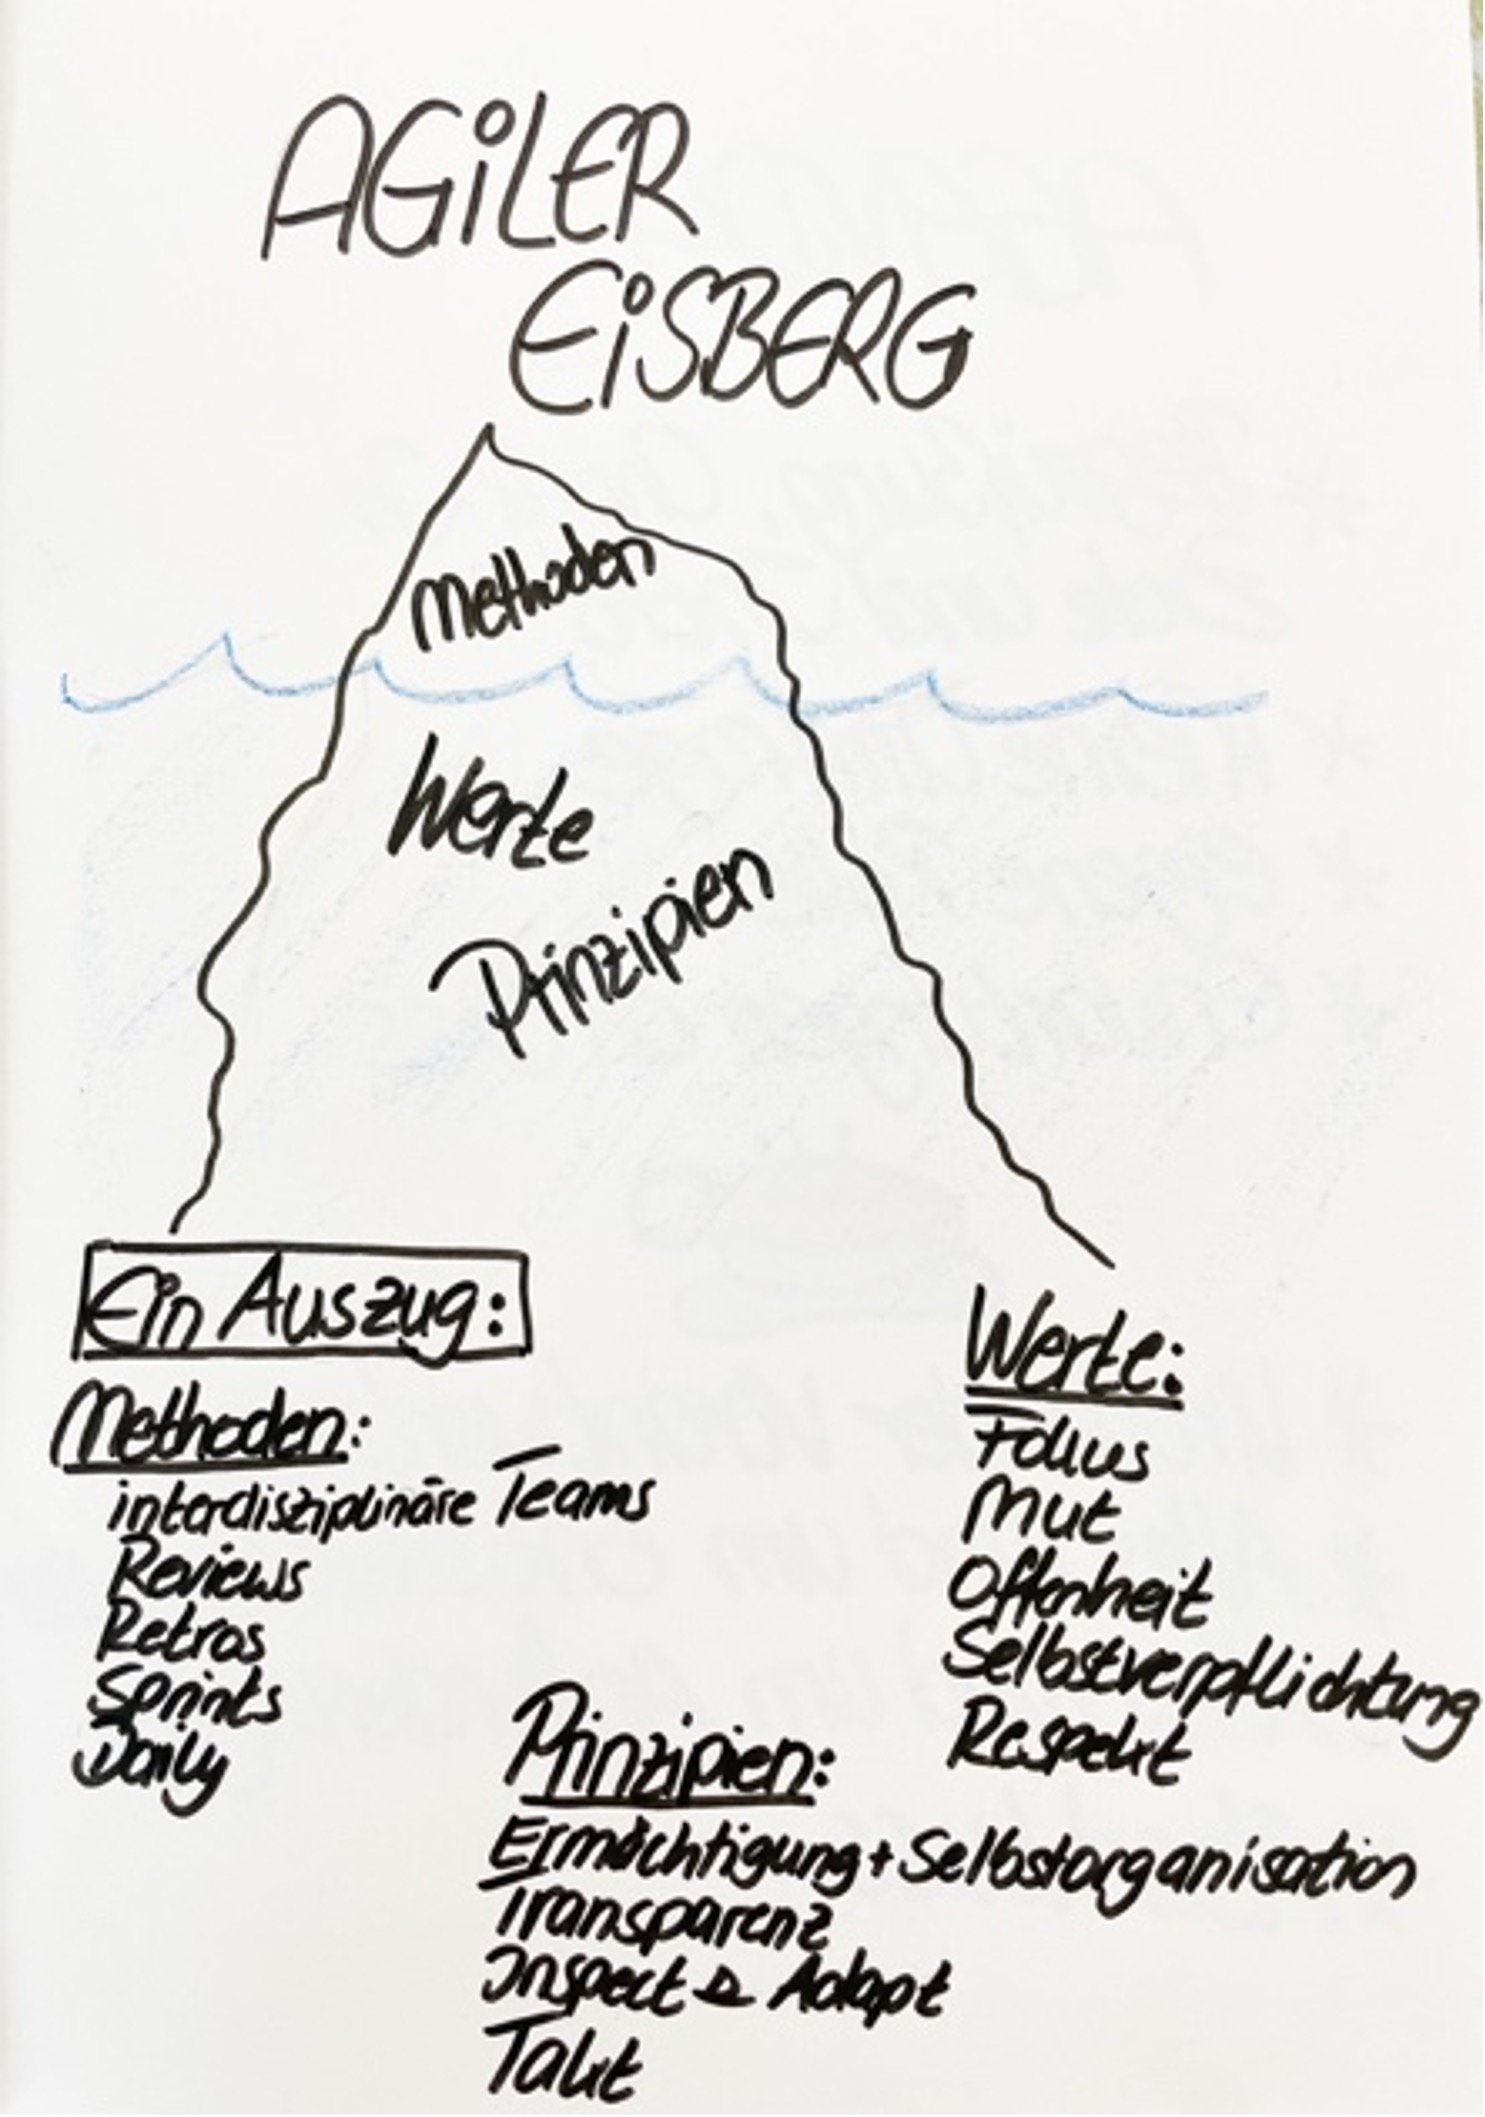 AGiLER
EiSBERG
Methoden
Werte
Prinzipien
Ein Auszug:
Methoden:
interdisziplinäre Teams
Reviews
Retros
Sprints
Daily
Werte:
Fokus
Mut
Offenheit
Selbstverpflichtung
Respekt
Prinzipien:
Ermächtigung + Selbstorganisation
Transparenz
Inspect & Adapt
Takt